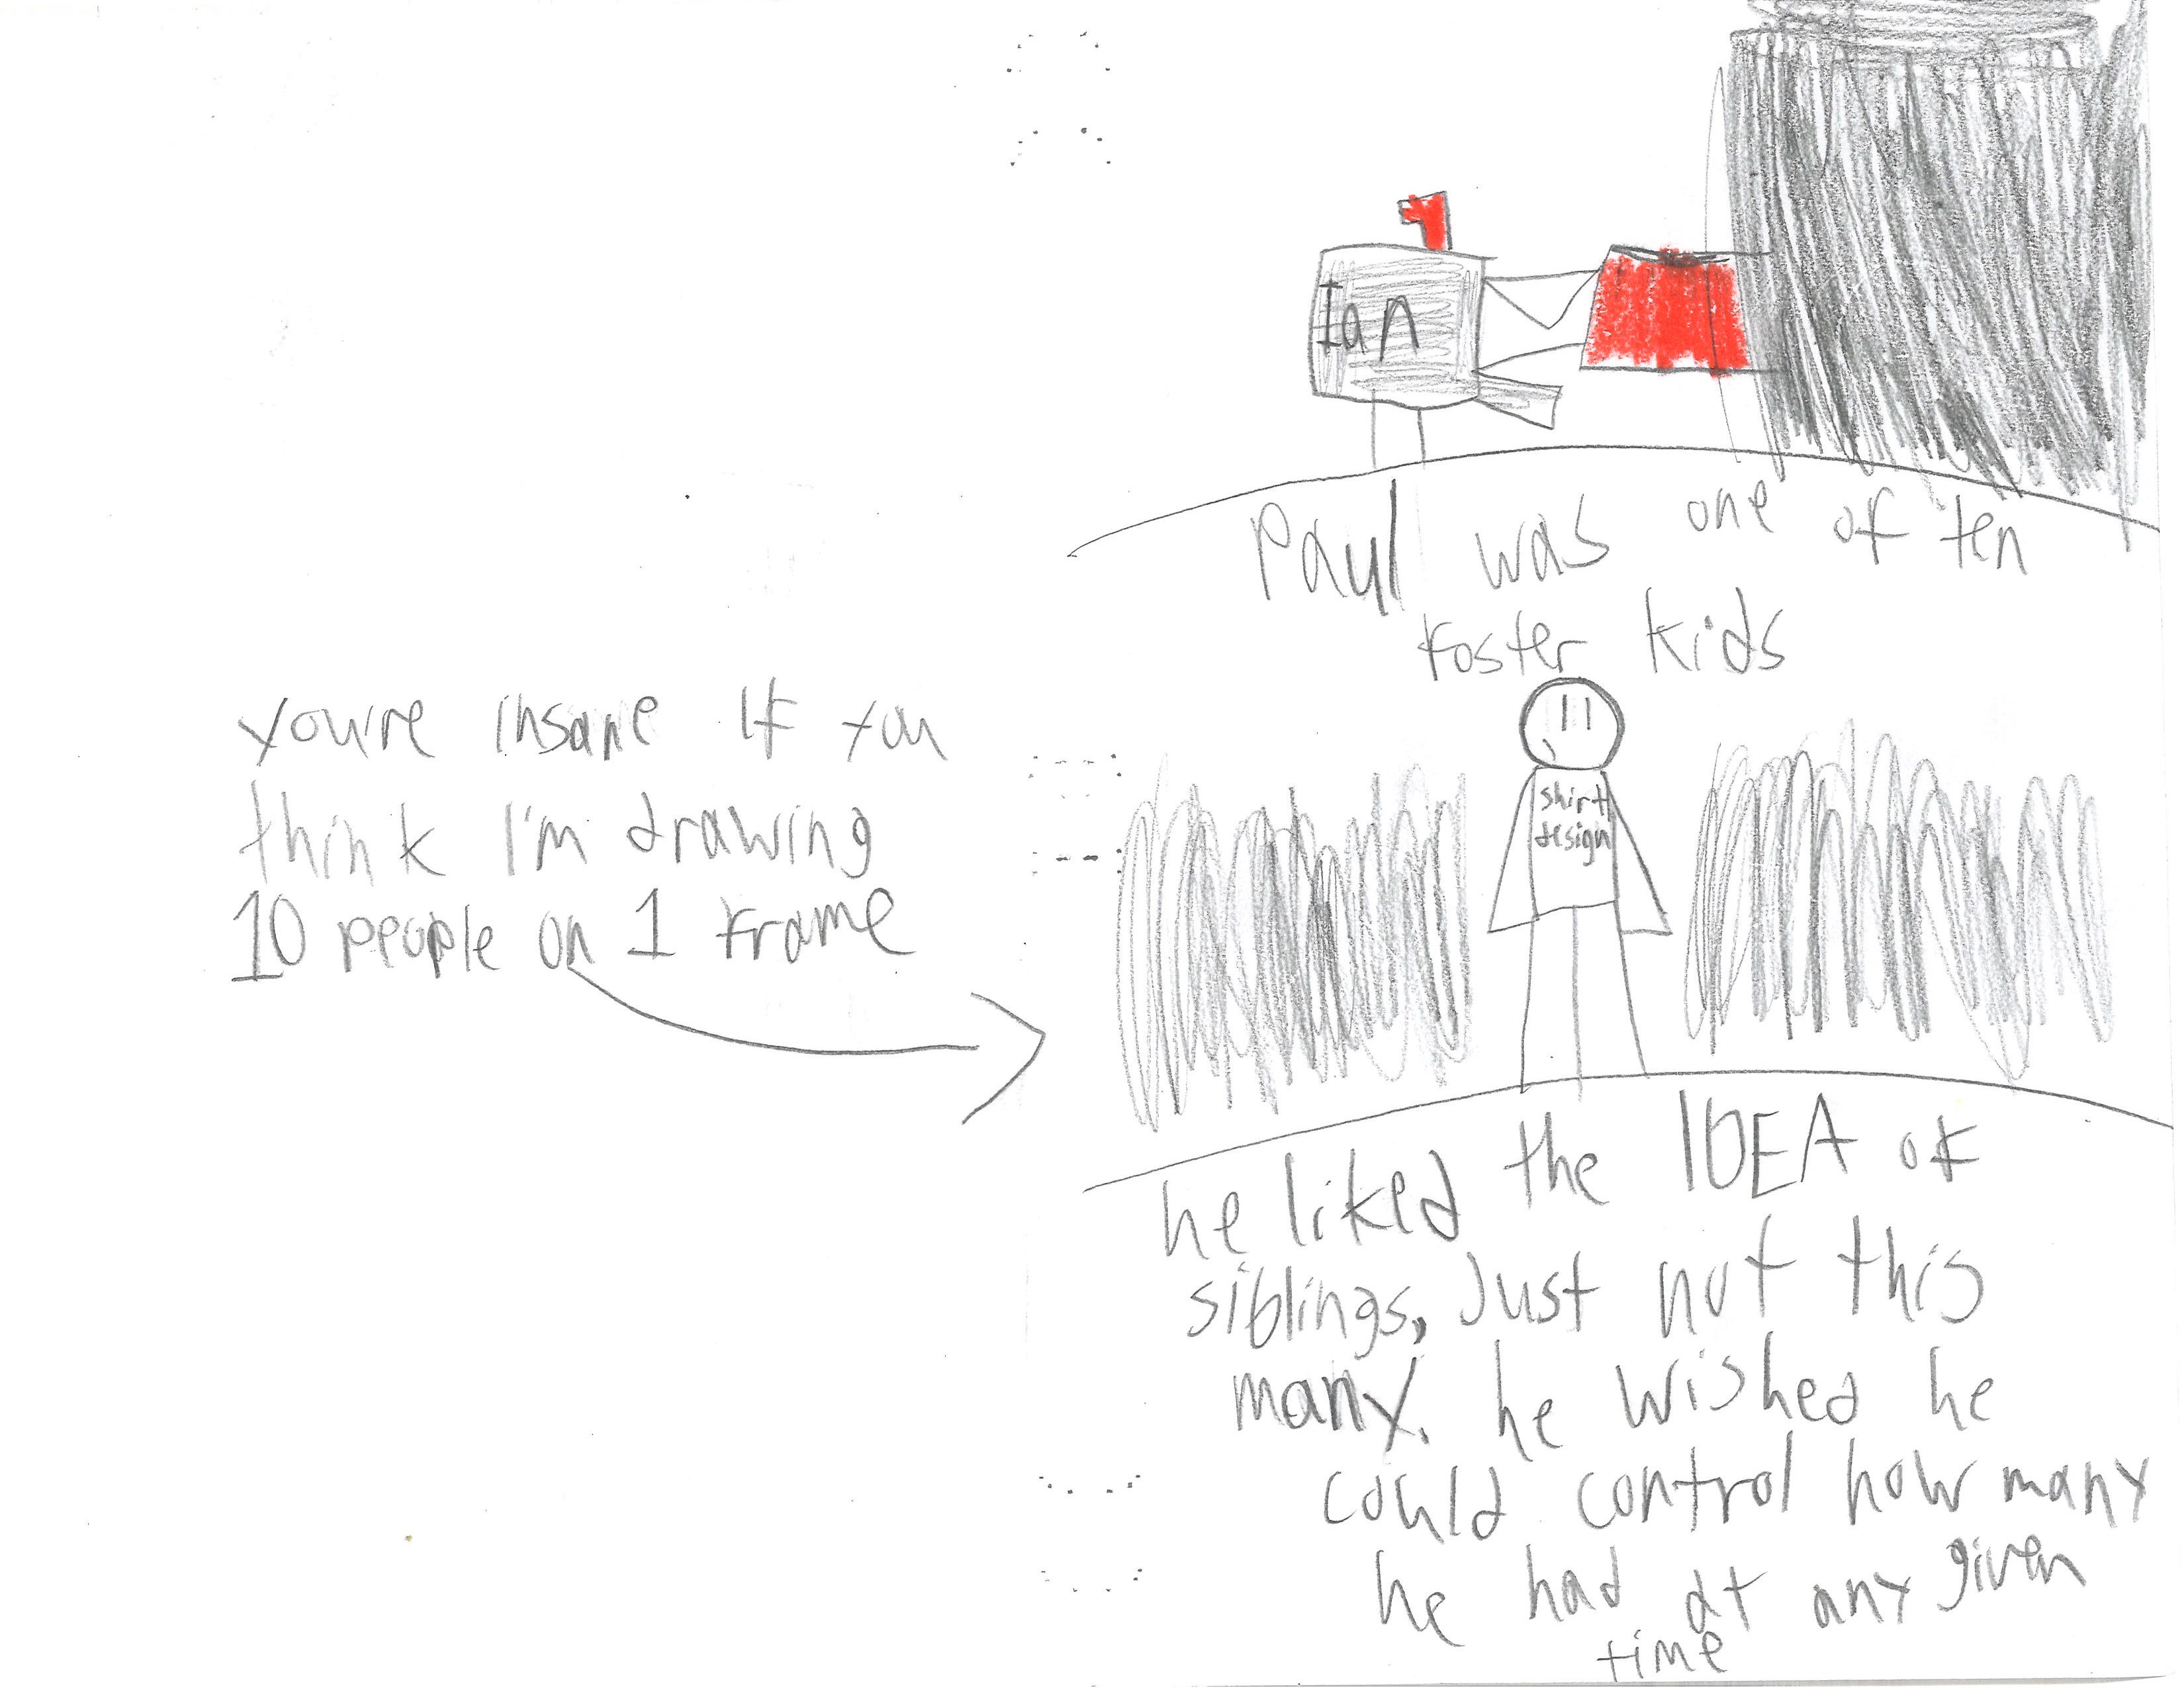 Ian
Paul was one of ten
foster kids
you're insane if you
think I'm drawing
10 people on 1 frame
shirt
design
he liked the IDEA of
siblings, Just not this
many. he wished he
could control how many
he had at any given
time